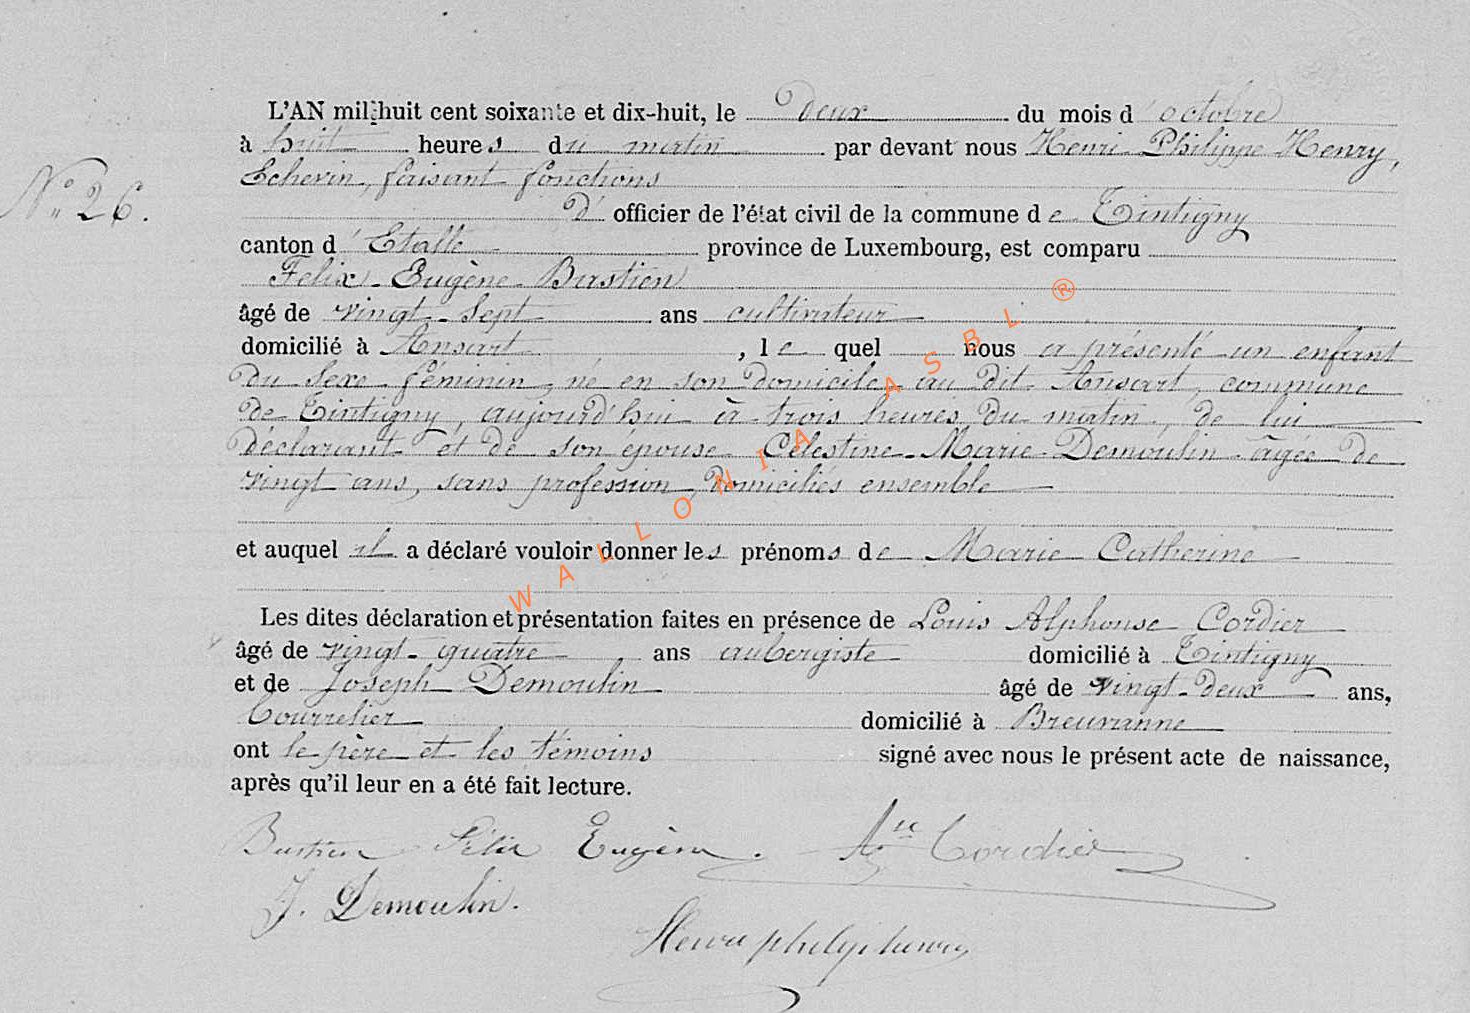 L'AN mil huit cent soixante et dix-huit, le Deux du mois d'octobre
à huit heures du matin par devant nous Henri Philippe Henry,
Echevin, faisant fonctions
N° 26.
d' officier de l'état civil de la commune de Tintigny
canton d'Etalle province de Luxembourg, est comparu
Felix-Eugène Bastien
âgé de vingt-sept ans cultivateur
domicilié à Ansart, le quel nous a présenté un enfant
du sexe féminin, né en son domicile au dit Ansart, commune
de Tintigny, aujourd'hui à trois heures du matin, de lui
déclarant et de son épouse Célestine-Marie Demoulin âgée de
vingt ans, sans profession, domiciliés ensemble
et auquel il a déclaré vouloir donner les prénoms de Marie Catherine
Les dites déclaration et présentation faites en présence de Louis Alphonse Cordier
âgé de vingt-quatre ans aubergiste domicilié à Tintigny
et de Joseph Demoulin âgé de vingt-deux ans,
Bourrelier domicilié à Breuvanne
ont le père et les témoins signé avec nous le présent acte de naissance,
après qu'il leur en a été fait lecture.
Bastien Félix Eugène. Cordier
J. Demoulin.
WALLONIA ASBL ®